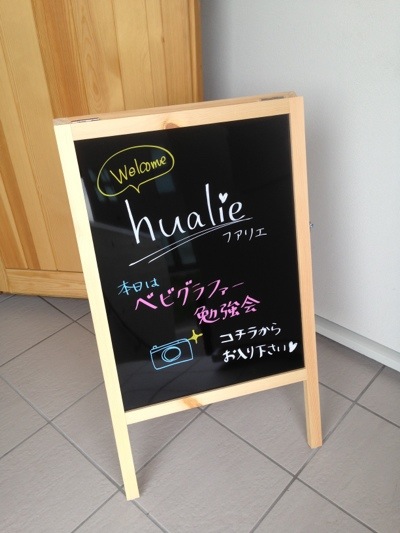 Welcome
hualie
ファリエ
本日は
ベビグラファー
勉強会
コチラから
お入り下さい♥